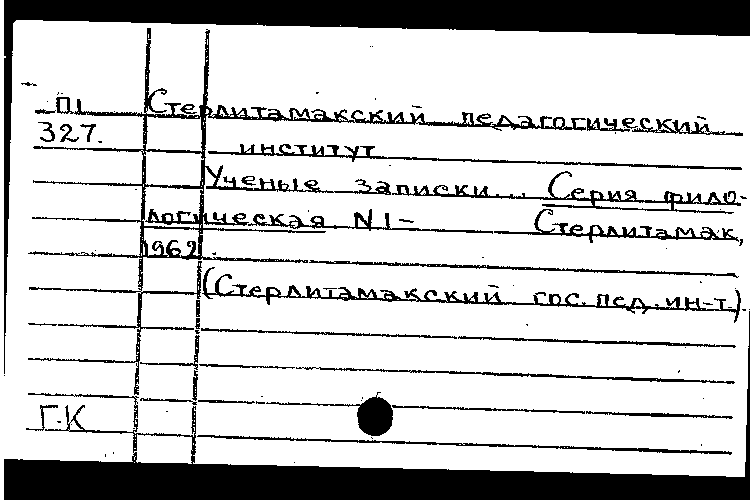 П1 Стерлитамакский педагогический
327. институт
Ученые записки... Серия фило-
логическая N 1- Стерлитамак,
1962.
(Стерлитамакский гос. пед. ин-т.)
Г.К